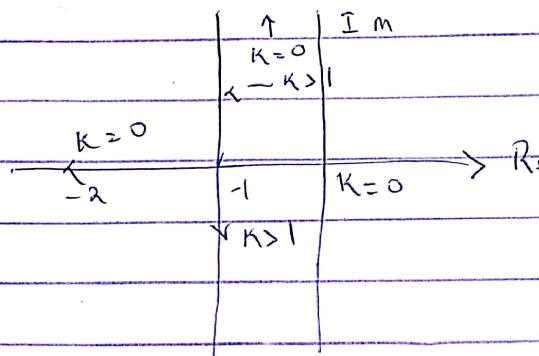 Im
K=0
K>1
K=0
-2
-1
K=0
K>1